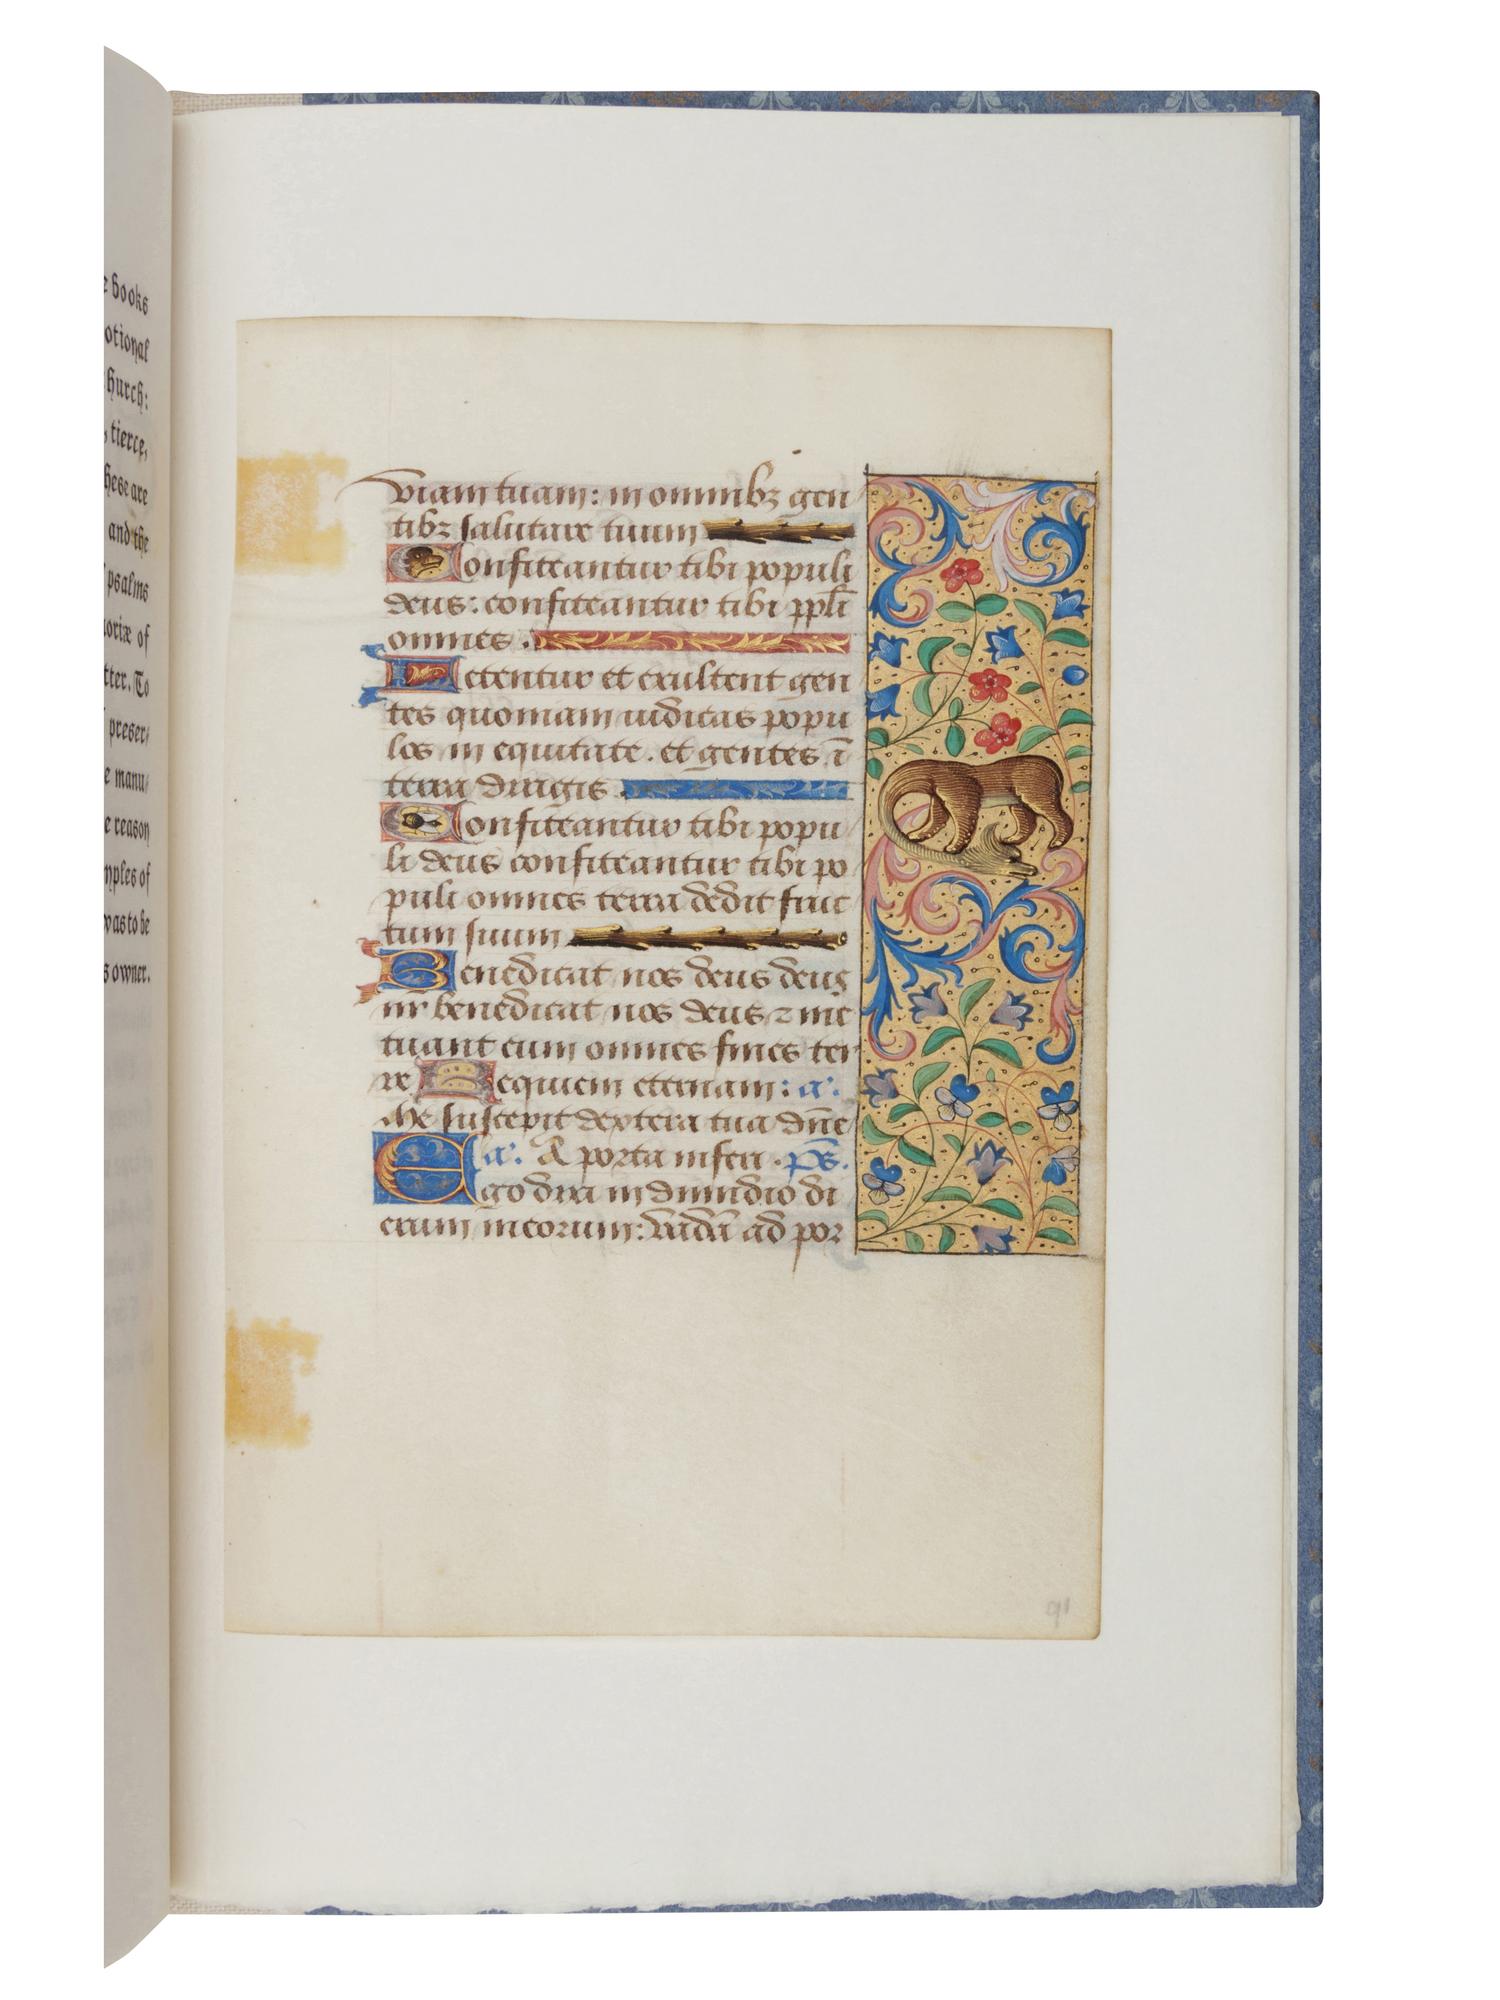 e books
otional
hurch:
, tierce,
hese are
and the
psalms
oriæ of
tter. To
preser/
e manu/
e reason
mples of
was to be
s owner.
viam tuam: in omnibȝ gen
tibȝ salutare tuum
Confiteantur tibi populi
deus: confiteantur tibi ppl̄i
omnes.
Letentur et exultent gen
tes quoniam iudicas popu
los in equitate. et gentes ī
terra dirigis
Confiteantur tibi popu
li deus confiteantur tibi po
puli omnes terra dedit fruc
tum suum
Benedicat nos deus deus
nr̄ benedicat nos deus ⁊ me
tuant eum omnes fines ter
re Requiem eternam: a'.
Me suscepit dextera tua dn̄e
a'. A porta inferi. ps̄.
Ego dixi in dimidio di
erum meorum: vadā ad por
91